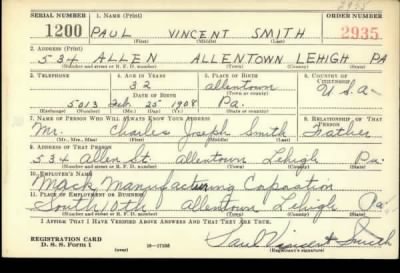 2935
SERIAL NUMBER 1. NAME (Print) ORDER NUMBER
1200 PAUL VINCENT SMITH 2935
(First) (Middle) (Last)
2. ADDRESS (Print)
534 ALLEN ALLENTOWN LEHIGH PA
(Number and street or R. F. D. number) (Town) (County) (State)
3. TELEPHONE 4. AGE IN YEARS 5. PLACE OF BIRTH 6. COUNTRY OF CITIZENSHIP
32 Allentown
DATE OF BIRTH (Town or county) U.S.A.
5013 Feb 25 1908 Pa.
(Exchange) (Number) (Mo.) (Day) (Yr.) (State or country)
7. NAME OF PERSON WHO WILL ALWAYS KNOW YOUR ADDRESS 8. RELATIONSHIP OF THAT PERSON
Mr. Charles Joseph Smith Father
(Mr., Mrs., Miss) (First) (Middle) (Last)
9. ADDRESS OF THAT PERSON
534 Allen St. Allentown Lehigh Pa.
(Number and street or R. F. D. number) (Town) (County) (State)
10. EMPLOYER'S NAME
Mack Manufacturing Coporation
11. PLACE OF EMPLOYMENT OR BUSINESS
South 10th Allentown Lehigh Pa
(Number and street or R. F. D. number) (Town) (County) (State)
I AFFIRM THAT I HAVE VERIFIED ABOVE ANSWERS AND THAT THEY ARE TRUE.
REGISTRATION CARD
D. S. S. Form 1 (over) Paul Vincent Smith
(Registrant's signature)